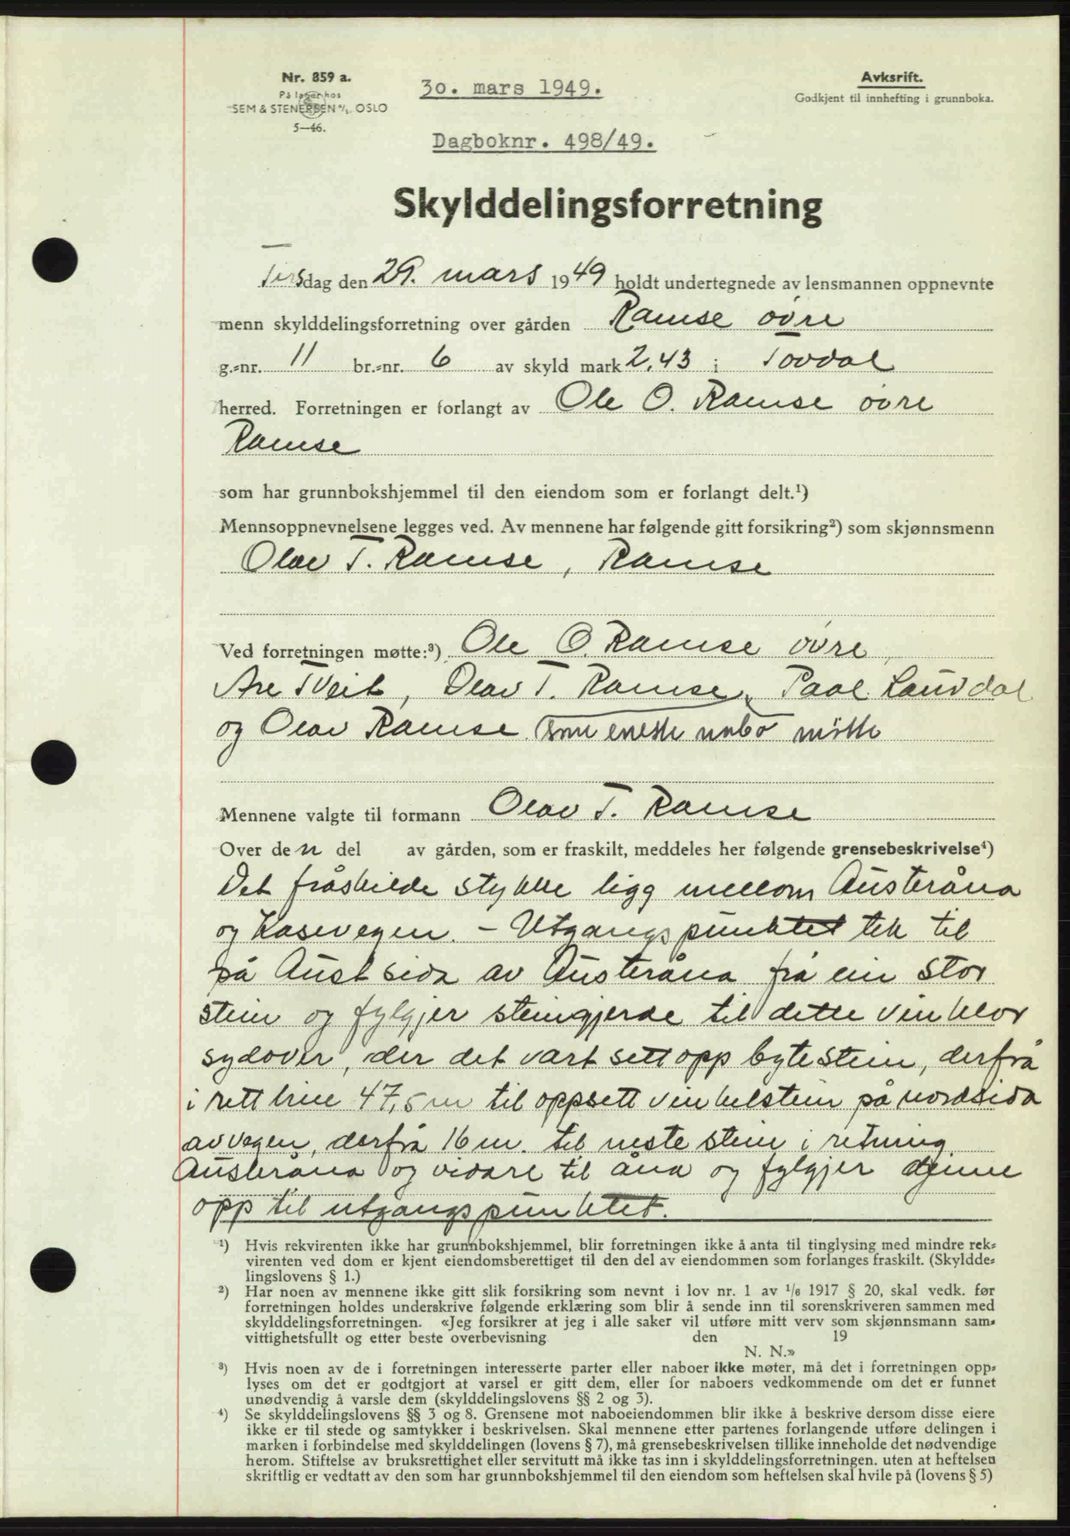 Nr. 859 a.
På lager hos
SEM & STENERSEN A/S. OSLO
5—46.
30. mars 1949.
Avksrift.
Godkjent til innhefting i grunnboka.
Dagboknr. 498/49.
Skylddelingsforretning
Tirsdag den 29. mars 1949 holdt undertegnede av lensmannen oppnevnte
menn skylddelingsforretning over gården Ramse øvre
g.-nr. 11 br.-nr. 6 av skyld mark 2,43 i Tovdal
herred. Forretningen er forlangt av Ole O. Ramse øvre
Ramse
som har grunnbokshjemmel til den eiendom som er forlangt delt.¹)
Mennsoppnevnelsene legges ved. Av mennene har følgende gitt forsikring²) som skjønnsmenn
Olav T. Ramse, Ramse
Ved forretningen møtte:³) Ole O. Ramse øvre,
Are Tveit, Olav T. Ramse, Paal Lauvdal
og Olav Ramse som eneste nabo møtte
Mennene valgte til formann Olav T. Ramse
Over den del av gården, som er fraskilt, meddeles her følgende grensebeskrivelse⁴)
Det fråskilde stykke ligg mellom Austeråna
og Kasevegen. – Utgangspunktet tek til
på Austsida av Austeråna frå ein stor
stein og fylgjer steingjerde til dette vinklar
sydover, der det vart sett opp bytestein, derfrå
i rett line 47,5 m til oppsett vinkelstein på nordsida
av vegen, derfrå 16 m. til neste stein i retning
Austeråna og vidare til åna og fylgjer denne
opp til utgangspunktet.
¹) Hvis rekvirenten ikke har grunnbokshjemmel, blir forretningen ikke å anta til tinglysing med mindre rek-
virenten ved dom er kjent eiendomsberettiget til den del av eiendommen som forlanges fraskilt. (Skyldde-
lingslovens § 1.)
²) Har noen av mennene ikke gitt slik forsikring som nevnt i lov nr. 1 av 1/6 1917 § 20, skal vedk. før
forretningen holdes underskrive følgende erklæring som blir å sende inn til sorenskriveren sammen med
skylddelingsforretningen. «Jeg forsikrer at jeg i alle saker vil utføre mitt verv som skjønnsmann sam-
vittighetsfullt og etter beste overbevisning den 19
N. N.»
³) Hvis noen av de i forretningen interesserte parter eller naboer ikke møter, må det i forretningen opp-
lyses om det er godtgjort at varsel er gitt dem, eller for naboers vedkommende om det er funnet
unødvendig å varsle dem (skylddelingslovens §§ 2 og 3).
⁴) Se skylddelingslovens §§ 3 og 8. Grensene mot naboeiendommen blir ikke å beskrive dersom disse eiere
ikke er til stede og samtykker i beskrivelsen. Skal mennene etter partenes forlangende utføre delingen i
marken i forbindelse med skylddelingen (lovens § 7), må grensebeskrivelsen tillike inneholde det nødvendige
herom. Stiftelse av bruksrettighet eller servitutt må ikke tas inn i skylddelingsforretningen. uten at heftelsen
skriftlig er vedtatt av den som har grunnbokshjemmel til den eiendom som heftelsen skal hvile på (lovens § 5)